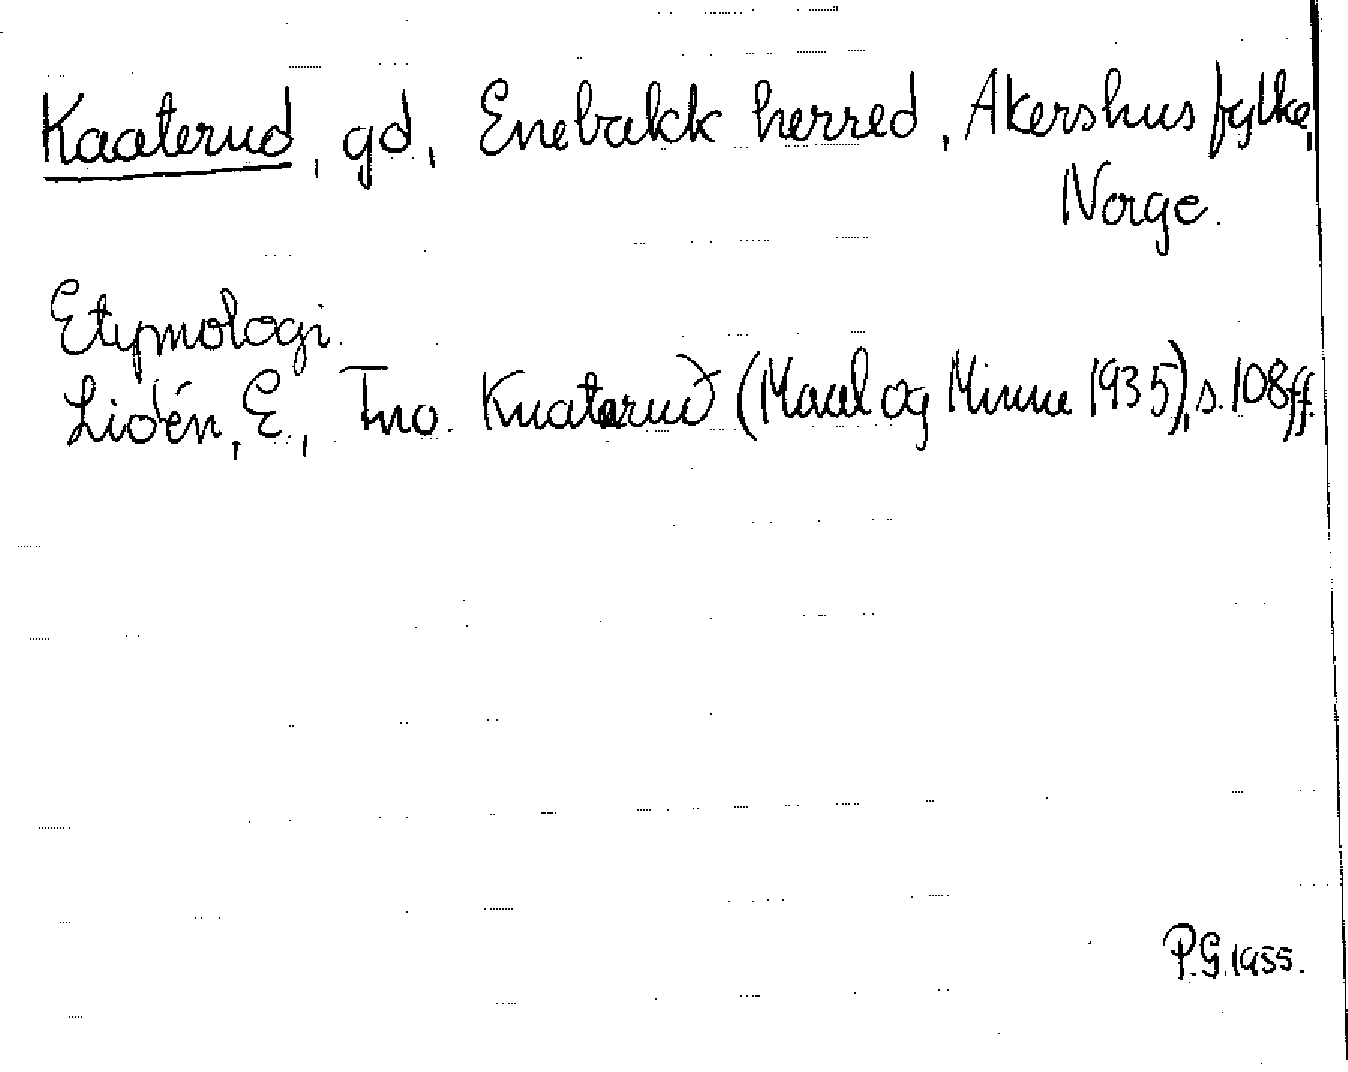 Kaaterud, gd, Enebakk herred, Akershus fylke,
Norge.
Etymologi.
Lidén, E., Fno. Knatarud (Maal og Minne 1935), s. 108 ff.
P.G. 1955.